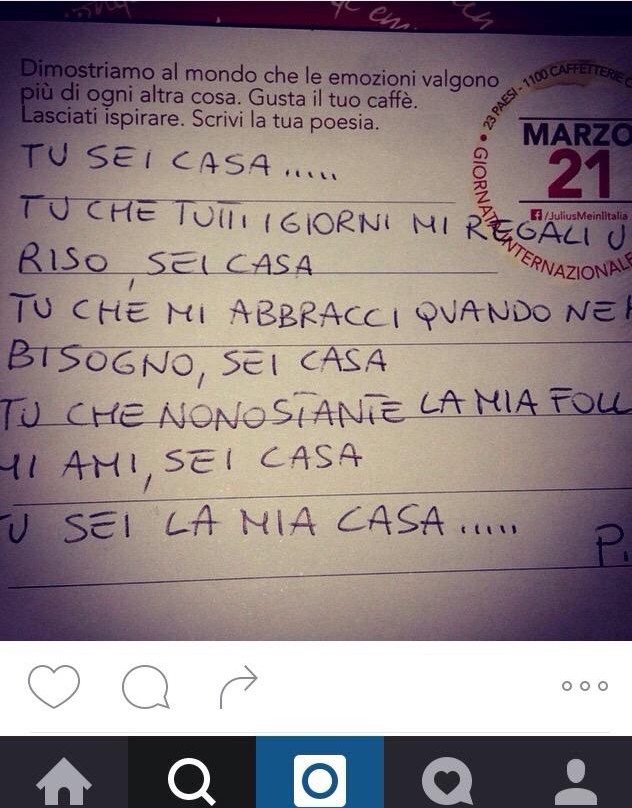 Dimostriamo al mondo che le emozioni valgono
più di ogni altra cosa. Gusta il tuo caffè.
Lasciati ispirare. Scrivi la tua poesia.
23 PAESI - 1100 CAFFETTERIE
GIORNATA INTERNAZIONALE
MARZO
21
/JuliusMeinlItalia
TU SEI CASA.....
TU CHE TUTTI I GIORNI MI REGALI U
RISO, SEI CASA
TU CHE MI ABBRACCI QUANDO NE
BISOGNO, SEI CASA
TU CHE NONOSTANTE LA MIA FOLL
MI AMI, SEI CASA
TU SEI LA MIA CASA.....
P.